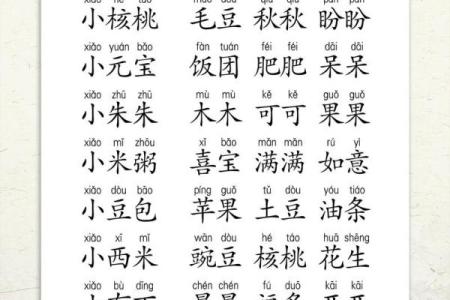 小核桃 毛豆 秋秋 盼盼
xiǎo yuán bǎo fàn tuán féi féi dāi dāi
小元宝 饭团 肥肥 呆呆
xiǎo zhū zhū mù mù kě kě guǒ guǒ
小朱朱 木木 可可 果果
xiǎo mǐ zhōu xǐ bǎo mǎn mǎn rú yì
小米粥 喜宝 满满 如意
xiǎo dòu bāo píng guǒ tǔ dòu yóu tiáo
小豆包 苹果 土豆 油条
xiǎo xī mǐ wān dòu hé táo huā shēng
小西米 豌豆 核桃 花生
xiǎo bù dīng chén chén fú duō